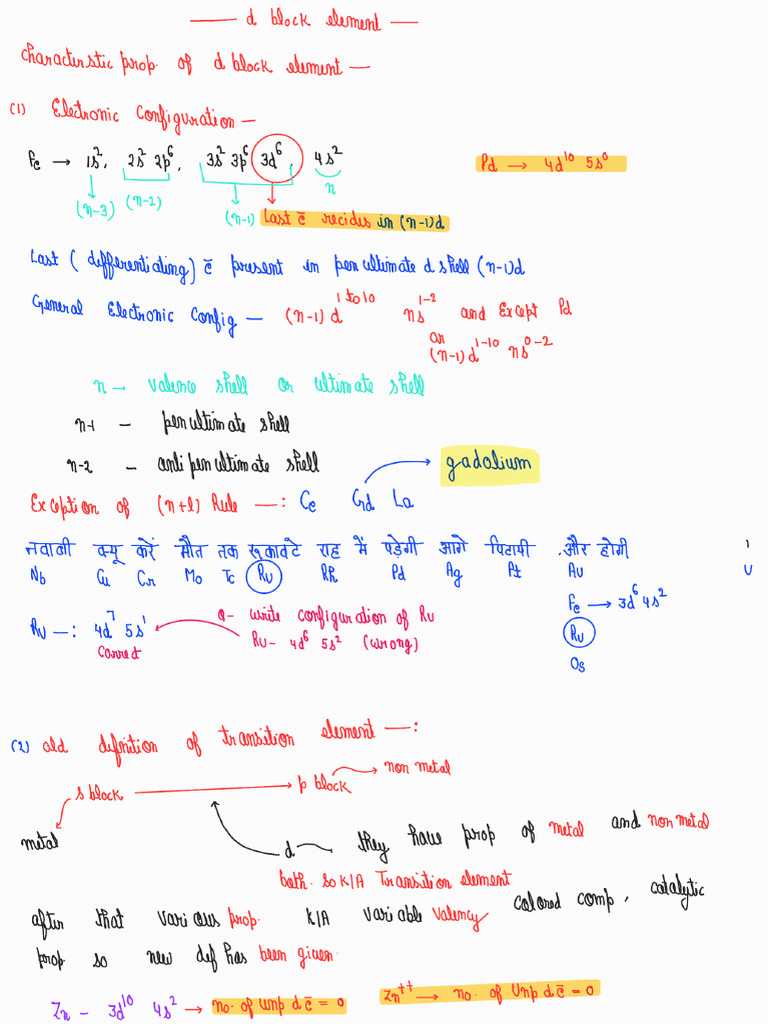 d block element
characteristic prop. of d block element —
(1) Electronic Configuration —
Fe → 1s², 2s² 2p⁶, 3s² 3p⁶ 3d⁶, 4s²
Pd → 4d¹⁰ 5s⁰
(n-3) (n-2) (n-1) n
Last e̅ recides in (n-1)d
Last (differentiating) e̅ present in penultimate d shell (n-1)d
General Electronic Config — (n-1) d¹ ᵗᵒ ¹⁰ ns¹⁻² and Except Pd
or
(n-1)d¹⁻¹⁰ ns⁰⁻²
n → valence shell or ultimate shell
n-1 — penultimate shell
n-2 — antipenultimate shell
gadolium
Exception of (n+l) Rule —: Ce Gd La
नवाबी क्यू करें मौत तक रूकावटे राह में पड़ेगी आगे पिटायी और होगी
Nb Cu Cr Mo Tc Ru Rh Pd Ag Pt Au U
Fe → 3d⁶ 4s²
Ru
Os
Ru —: 4d⁷ 5s¹
Correct
Q- write configuration of Ru
Ru- 4d⁶ 5s² (wrong)
(2) old defination of transition element —:
s block → p block → non metal
metal
d → they have prop of metal and non metal
both. so K/A Transition element
after that various prop. K/A variable valency colored comp, catalytic
prop so new def has been given.
Zn - 3d¹⁰ 4s² → no. of unp d e̅ = 0
Zn⁺⁺ → no. of Unp d e̅ = 0